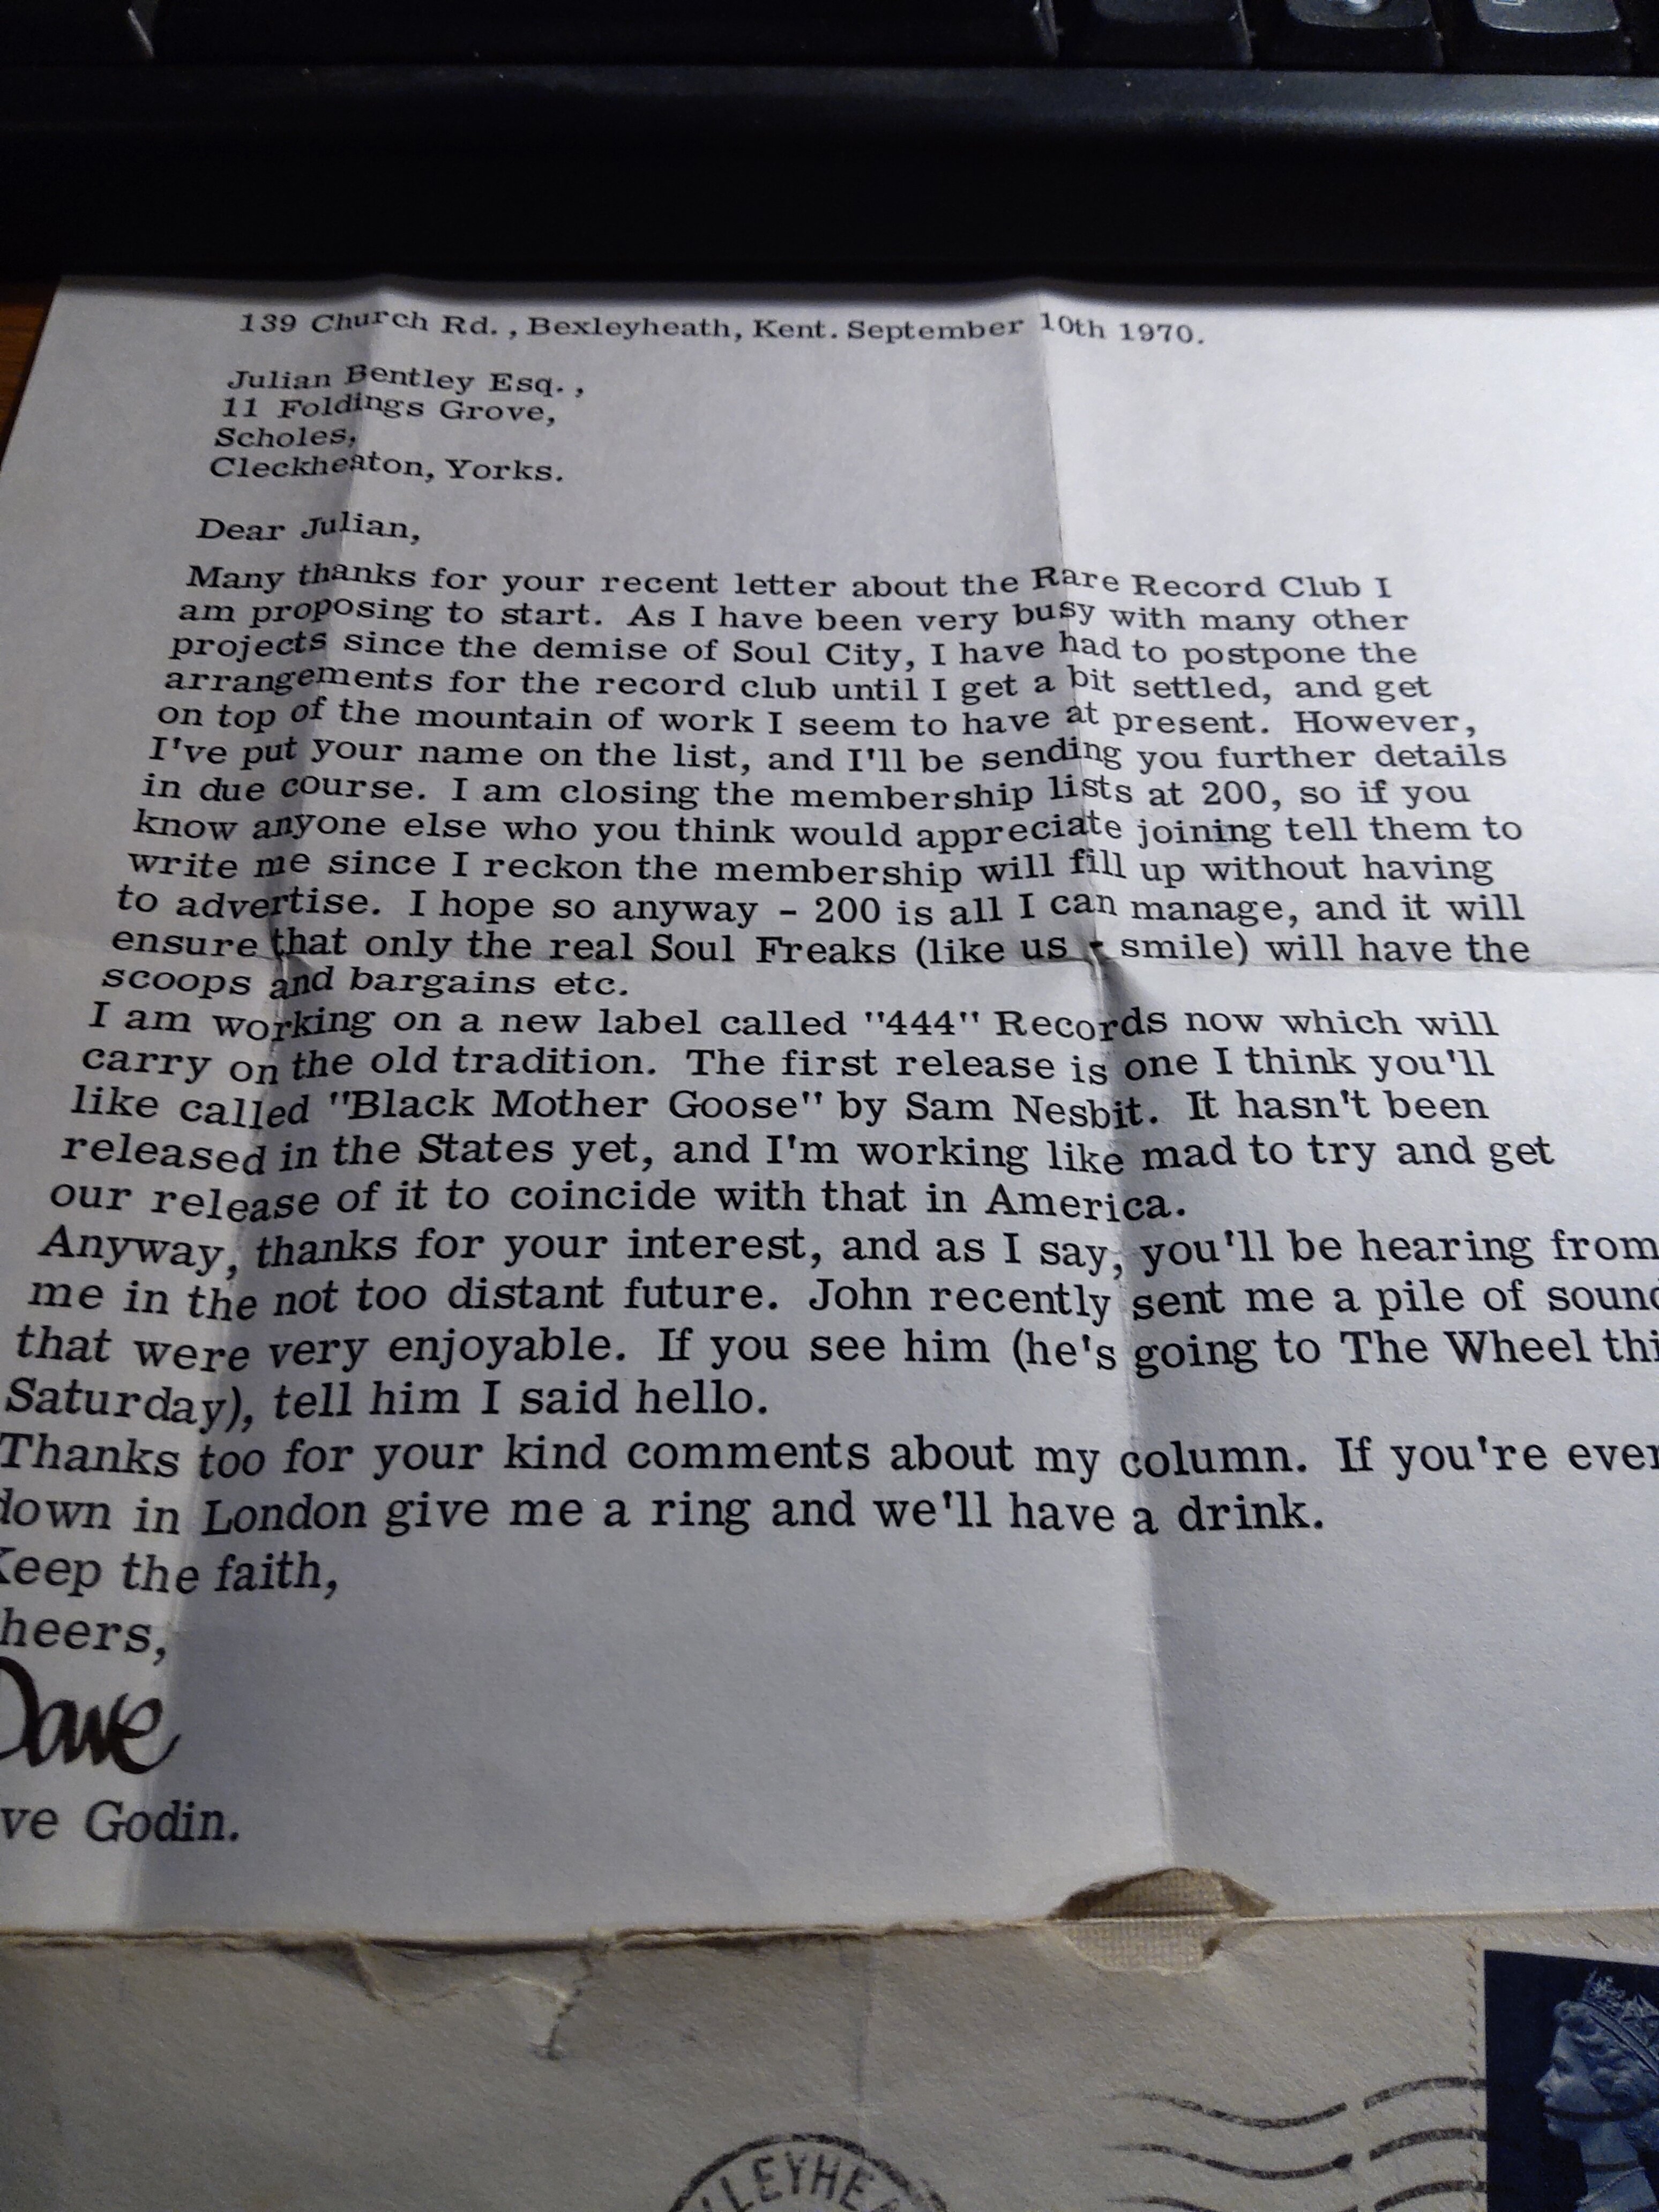 139 Church Rd., Bexleyheath, Kent. September 10th 1970.
Julian Bentley Esq.,
11 Foldings Grove,
Scholes,
Cleckheaton, Yorks.
Dear Julian,
Many thanks for your recent letter about the Rare Record Club I
am proposing to start. As I have been very busy with many other
projects since the demise of Soul City, I have had to postpone the
arrangements for the record club until I get a bit settled, and get
on top of the mountain of work I seem to have at present. However,
I've put your name on the list, and I'll be sending you further details
in due course. I am closing the membership lists at 200, so if you
know anyone else who you think would appreciate joining tell them to
write me since I reckon the membership will fill up without having
to advertise. I hope so anyway - 200 is all I can manage, and it will
ensure that only the real Soul Freaks (like us - smile) will have the
scoops and bargains etc.
I am working on a new label called "444" Records now which will
carry on the old tradition. The first release is one I think you'll
like called "Black Mother Goose" by Sam Nesbit. It hasn't been
released in the States yet, and I'm working like mad to try and get
our release of it to coincide with that in America.
Anyway, thanks for your interest, and as I say, you'll be hearing from
me in the not too distant future. John recently sent me a pile of sound
that were very enjoyable. If you see him (he's going to The Wheel thi
Saturday), tell him I said hello.
Thanks too for your kind comments about my column. If you're ever
down in London give me a ring and we'll have a drink.
Keep the faith,
heers,
Dave
ve Godin.
LEYHEA